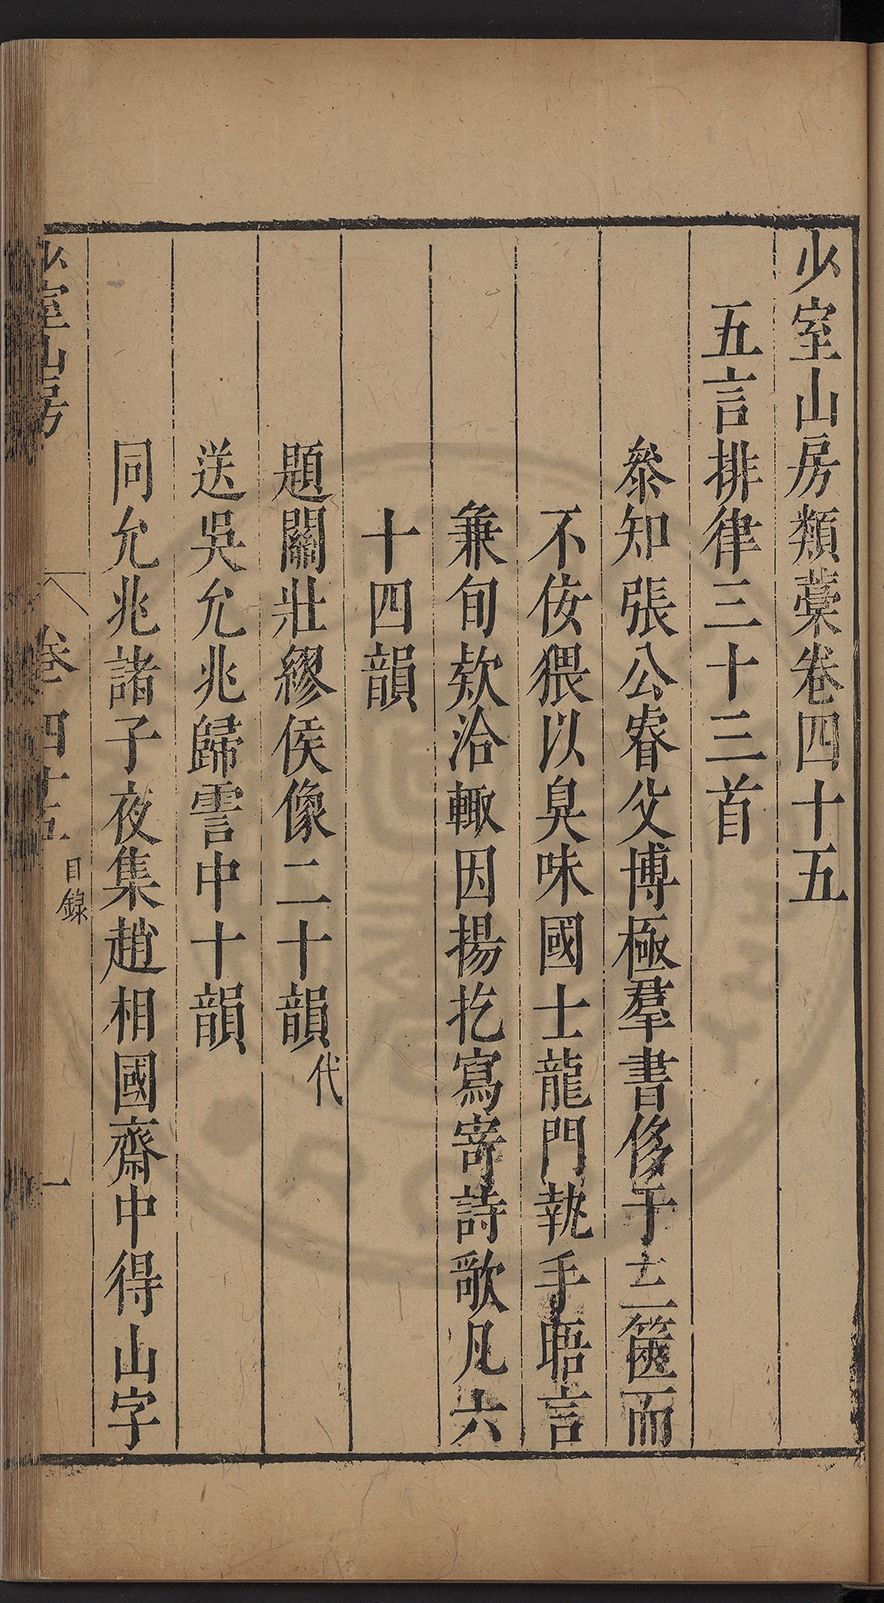 少室山房類藁卷四十五
五言排律三十三首
叅知張公睿父博極羣書侈于二箧而
不佞猥以臭味國士龍門執手晤言
兼旬欵洽輙因揚扢寫寄詩歌凡六
十四韻
題關壯繆侯像二十韻代
送吳允兆歸霅中十韻
同允兆諸子夜集趙相國齋中得山字
少室山房 卷四十五 目錄 一